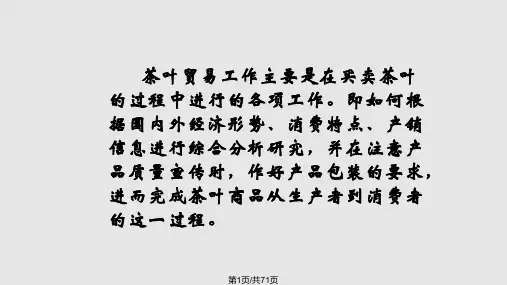 茶叶贸易工作主要是在买卖茶叶
的过程中进行的各项工作。即如何根
据国内外经济形势、消费特点、产销
信息进行综合分析研究，并在注意产
品质量宣传时，作好产品包装的要求，
进而完成茶叶商品从生产者到消费者
的这一过程。
第1页/共71页